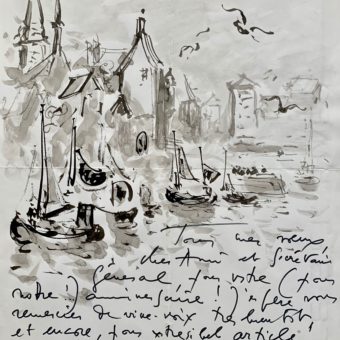 Tous mes vœux,
cher Ami et Secrétaire
Général, pour votre (pour
notre !) anniversaire ! J'espère vous
remercier de vive-voix très bientôt
et encore, pour votre si bel article